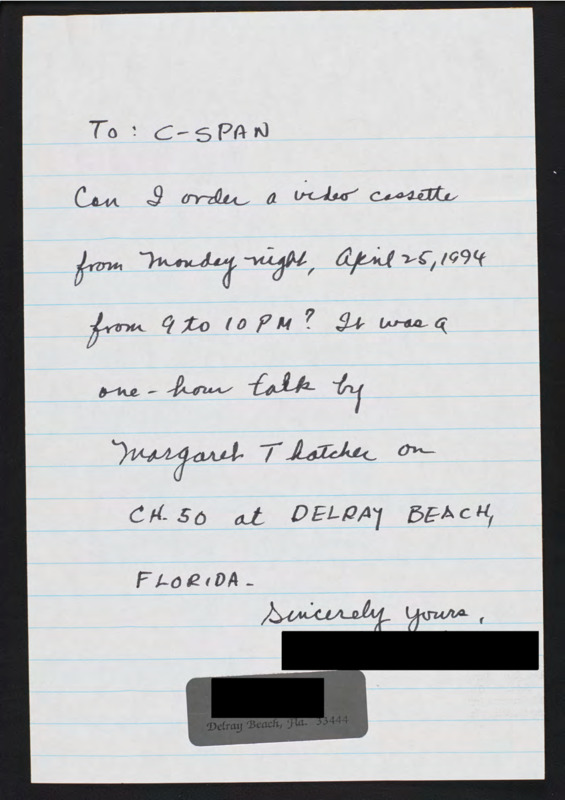 To: C-SPAN
Can I order a video cassette
from Monday night, April 25, 1994
from 9 to 10 PM? It was a
one-hour talk by
Margaret Thatcher on
CH. 50 at DELRAY BEACH,
FLORIDA-
Sincerely yours,
Delray Beach, Fla. 33444